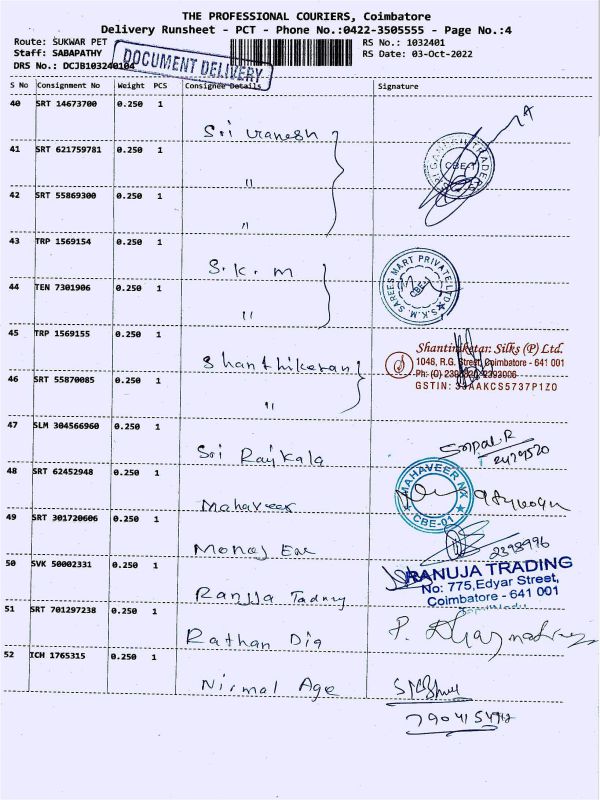 THE PROFESSIONAL COURIERS, Coimbatore
Delivery Runsheet - PCT - Phone No.:0422-3505555 - Page No.:4
Route: SUKWAR PET RS No.: 1032401
Staff: SABAPATHY RS Date: 03-Oct-2022
DRS No.: DCJB103240104
DOCUMENT DELIVERY
S No Consignment No Weight PCS Consignee Details Signature
40 SRT 14673700 0.250 1
Sri Ganesh
41 SRT 621759781 0.250 1
"
CBE-1
42 SRT 55869300 0.250 1
"
43 TRP 1569154 0.250 1
S.K.M
S.K.M. SAREES MART PRIVATE LTD
CBE-1
44 TEN 7301906 0.250 1
"
45 TRP 1569155 0.250 1
Shanthikeran
Shantiniketan Silks (P) Ltd.
1048, R.G. Street, Coimbatore - 641 001
Ph: (O)
GSTIN: 33AAKCS5737P1Z0
46 SRT 55870085 0.250 1
"
47 SLM 304566960 0.250 1
Sri Rajkala
48 SRT 62452948 0.250 1
Mahaveer
MAHAVEER NX
CBE-01
49 SRT 301720606 0.250 1
Monaj Ent
2398996
50 SVK 50002331 0.250 1
Ranjja Tadny
RANUJA TRADING
No: 775,Edyar Street,
Coimbatore - 641 001
51 SRT 701297238 0.250 1
Rathan Dig
52 ICH 1765315 0.250 1
Nirmal Age